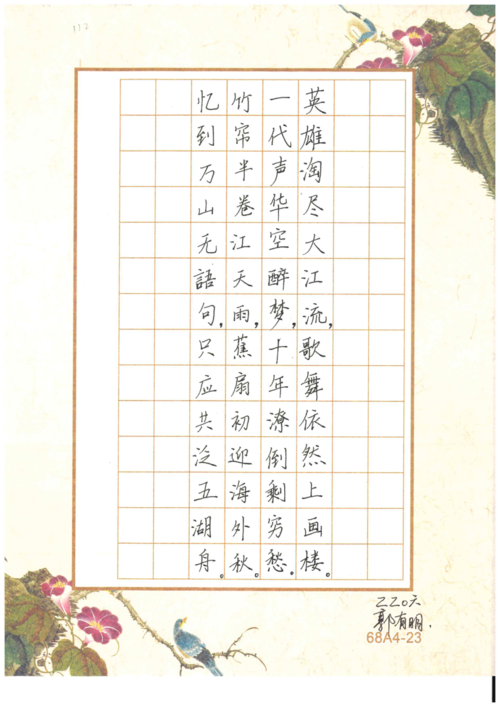 117
英雄淘尽大江流，歌舞依然上画楼。
一代声华空醉梦，十年潦倒剩穷愁。
竹帘半卷江天雨，蕉扇初迎海外秋。
忆到万山无語句，只应共泛五湖舟。
二二〇六
郭有明.
68A4-23